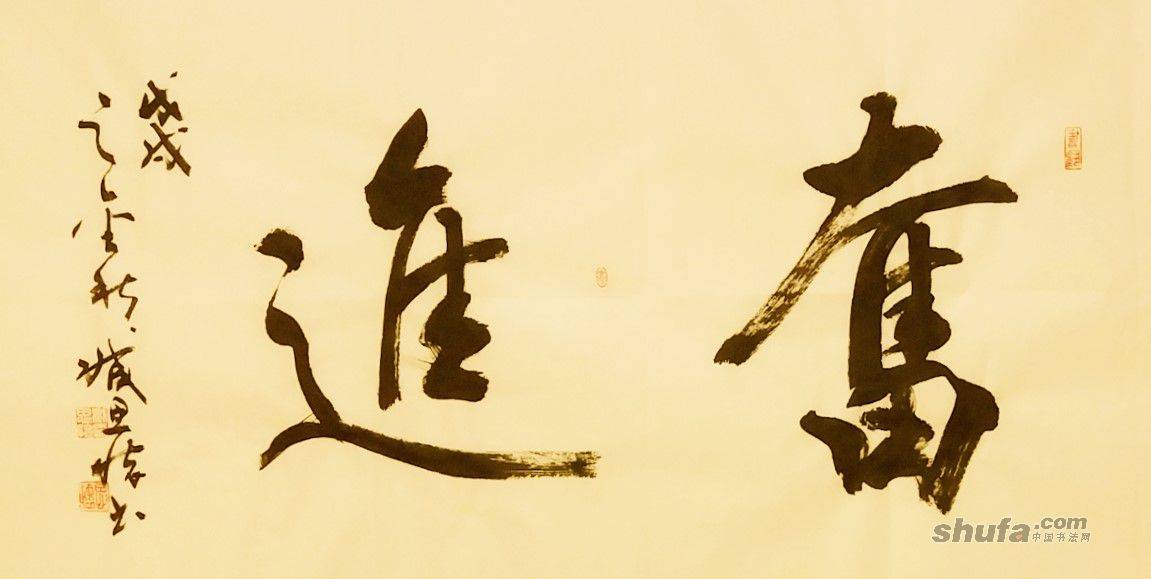 奮進
戊戌
之金秋 臧思 书
shufa.com
中国书法网